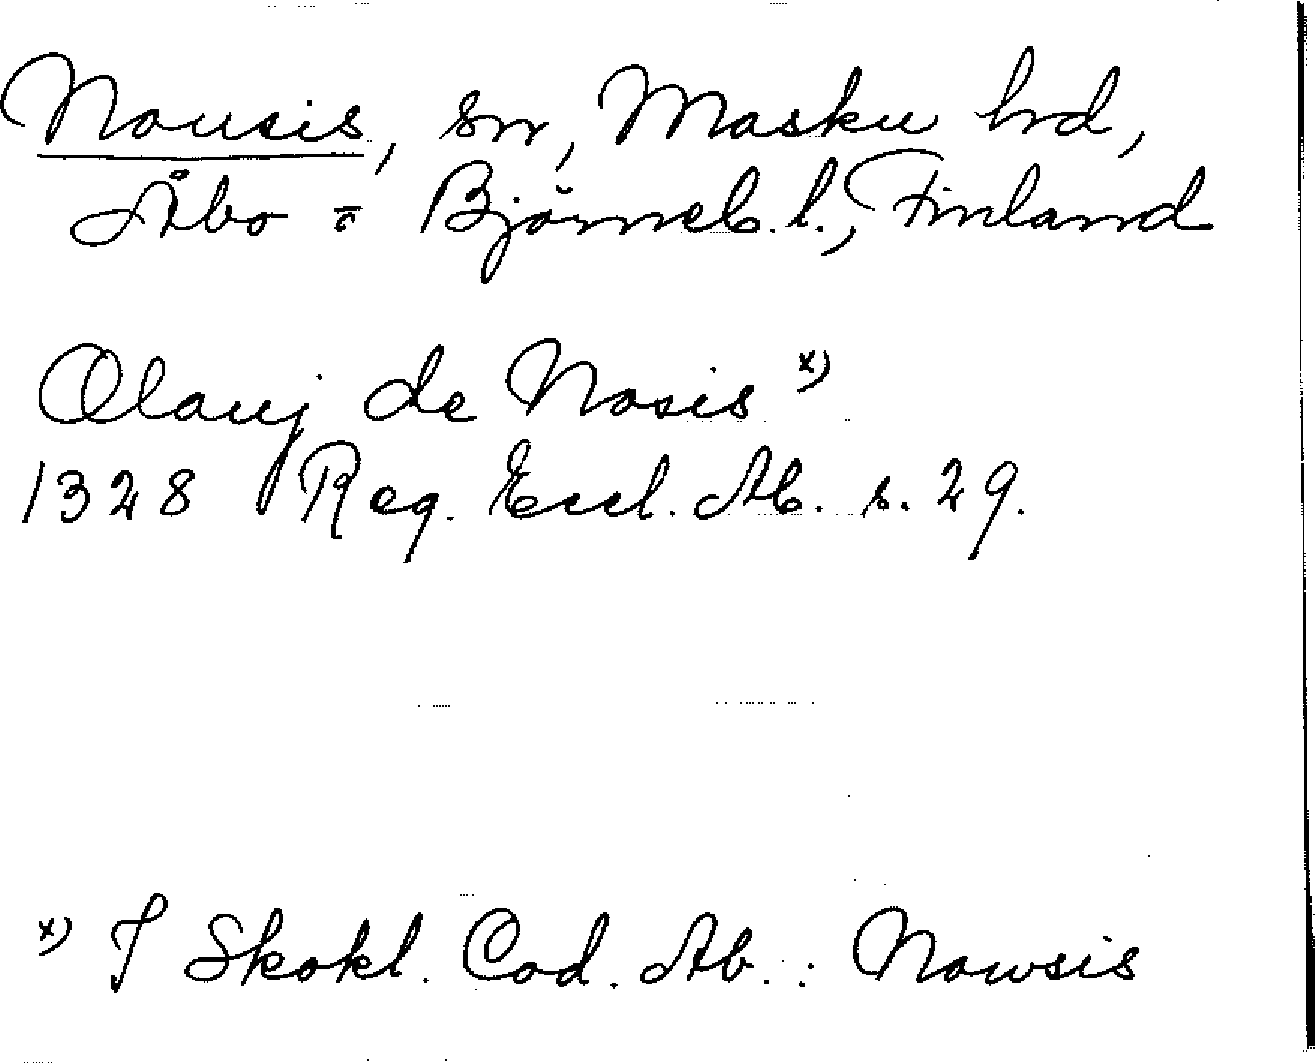 Nousis, sn, Masku hrd,
Åbo = Björneb. l., Finland
Olauj de Nosis x)
1328 Reg. Eccl. Ab. s. 29.
x) I Skokl. Cod. Ab. : Nowsis